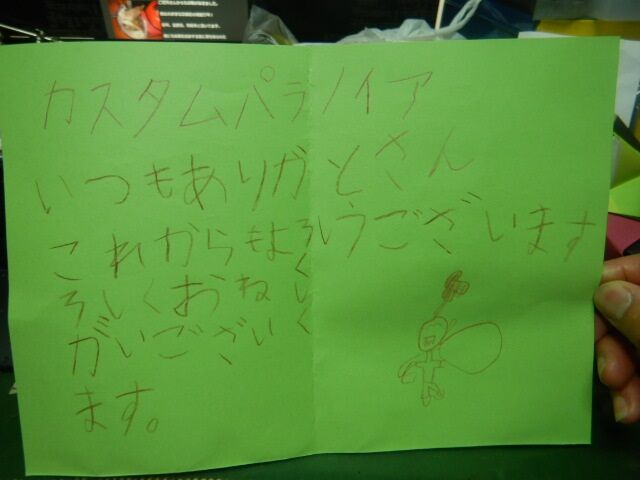 カスタムパラノイア
いつもありがとさん
これからもよろしくうございます
ろしくおね
がいござい
ます。